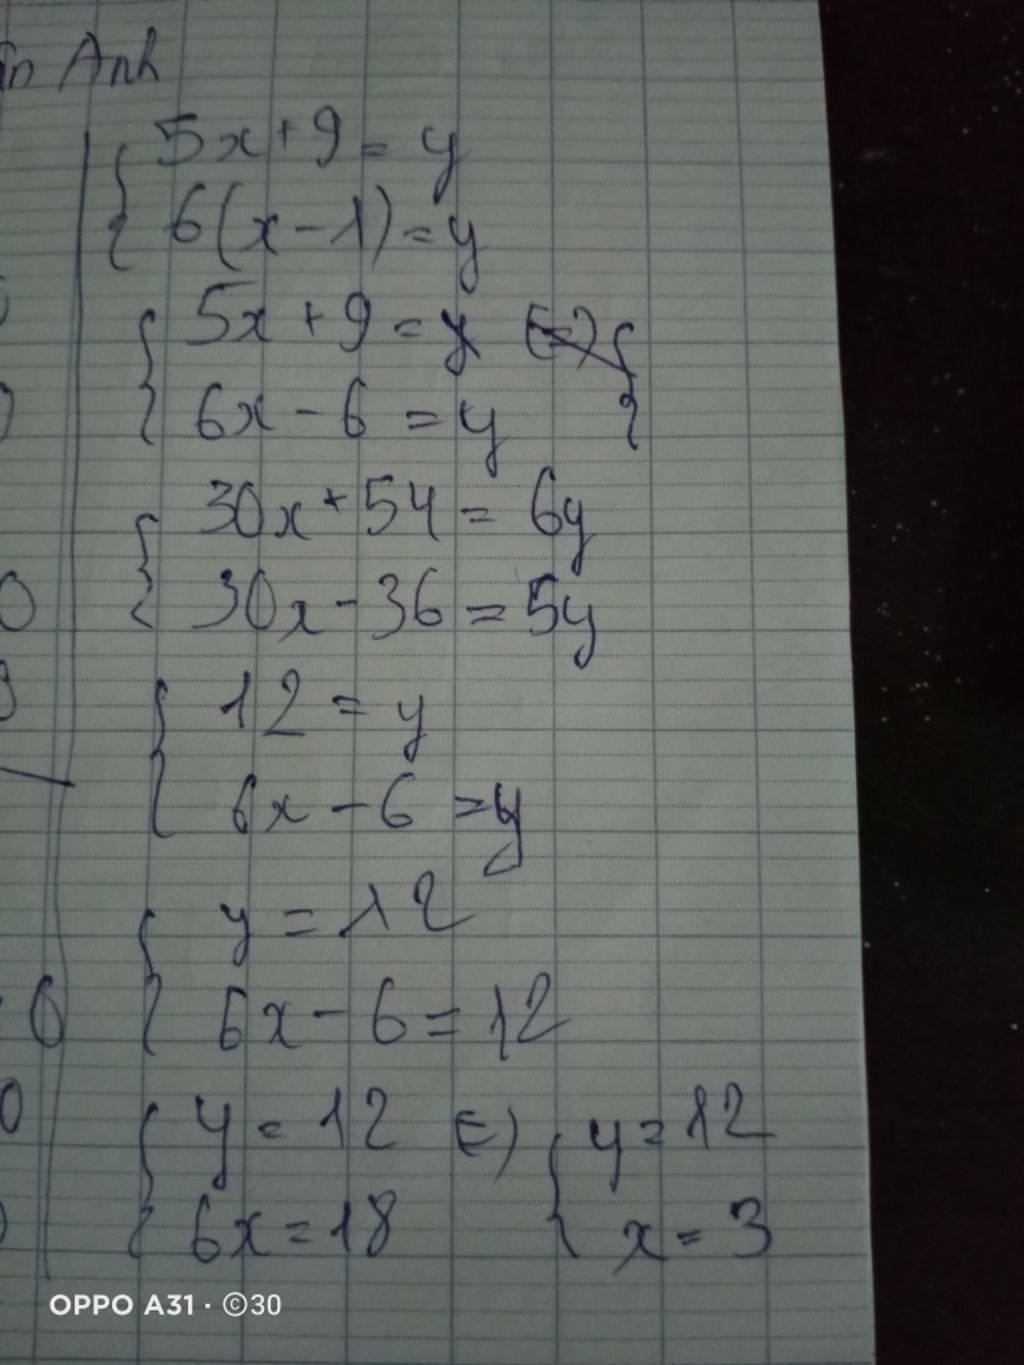 Anh
5x + 9 = y
6(x - 1) = y
5x + 9 = y
6x - 6 = y
30x + 54 = 6y
30x - 36 = 5y
12 = y
6x - 6 = y
y = 12
6x - 6 = 12
y = 12 (=) y = 12
6x = 18 x = 3
OPPO A31 · ©30